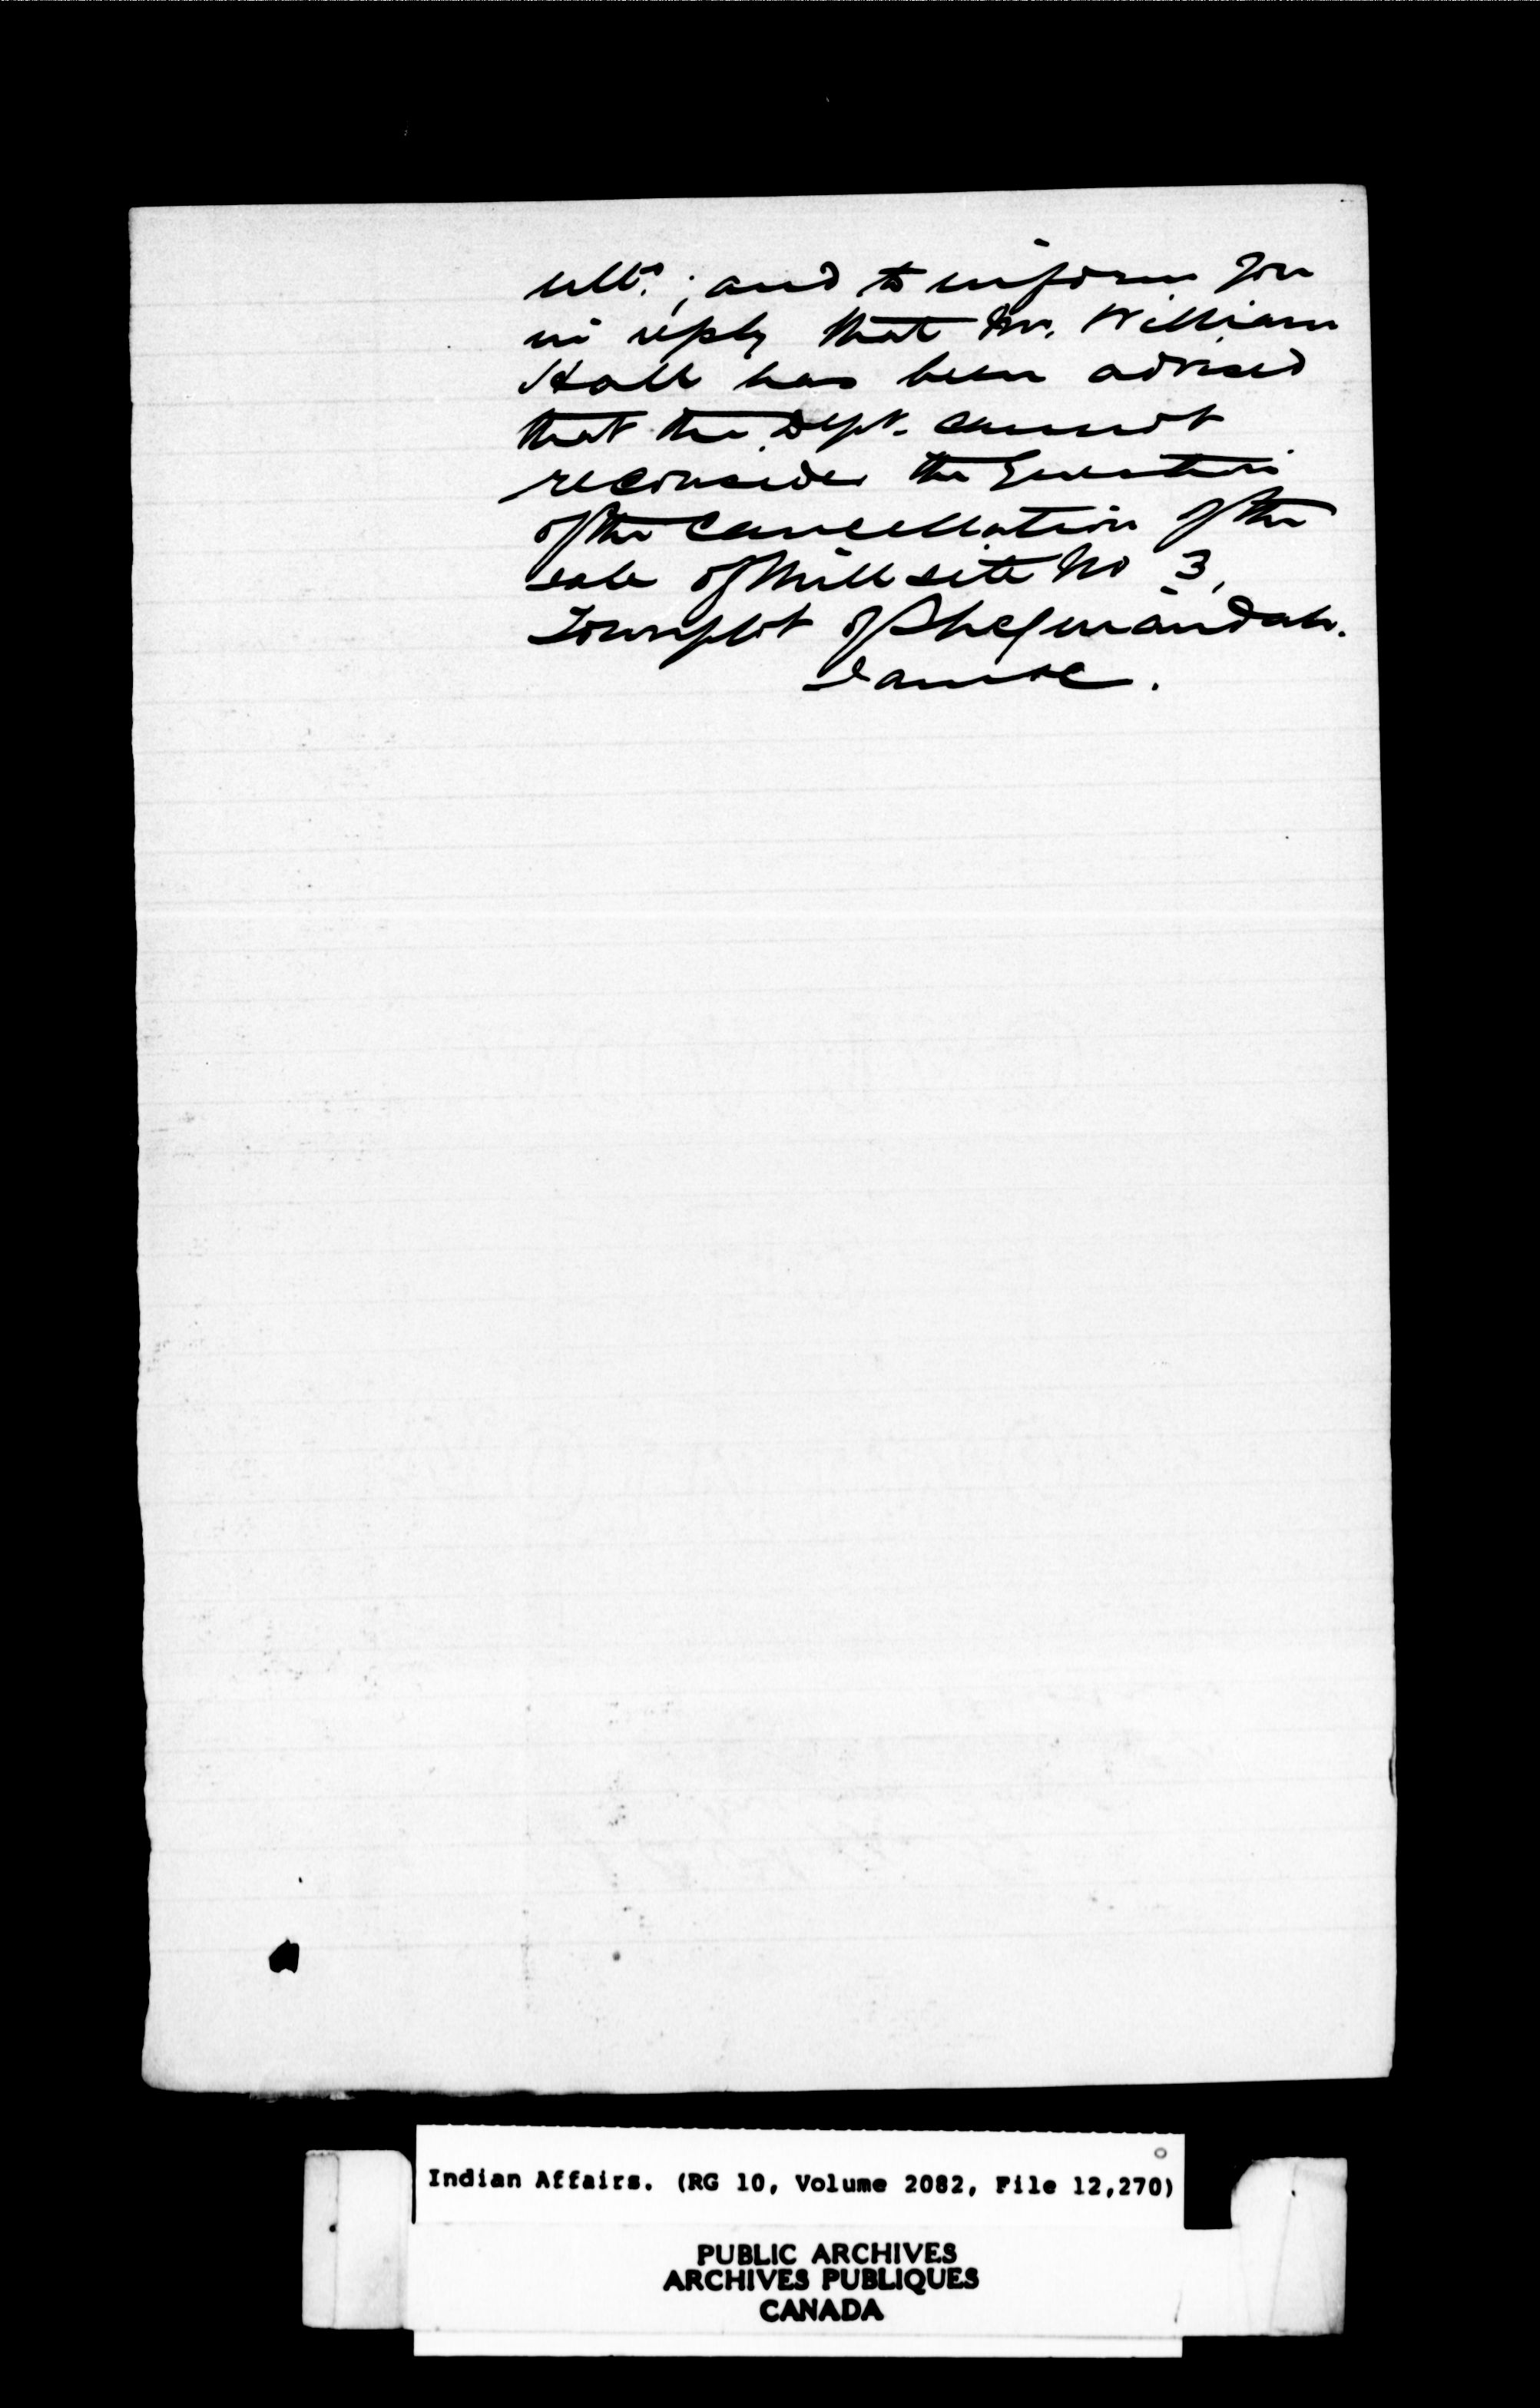 ulto.; and to inform you
in reply that Mr. William
Hall has been advised
that the Dept. cannot
reconsider the question
of the cancellation of the
sale of Mill site No 3,
Townplot of Sheguiandah.
Indian Affairs. (RG 10, Volume 2082, File 12,270)
PUBLIC ARCHIVES
ARCHIVES PUBLIQUES
CANADA